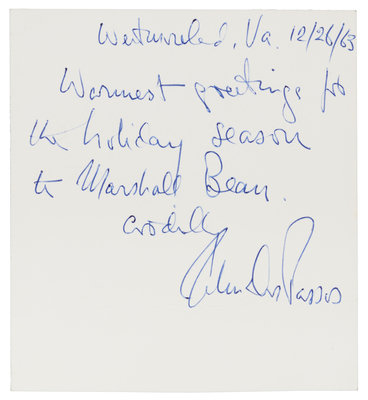 Westmoreland, Va. 12/26/63
Warmest greetings for
the holiday season
to Marshall Bean.
cordially
John Dos Passos